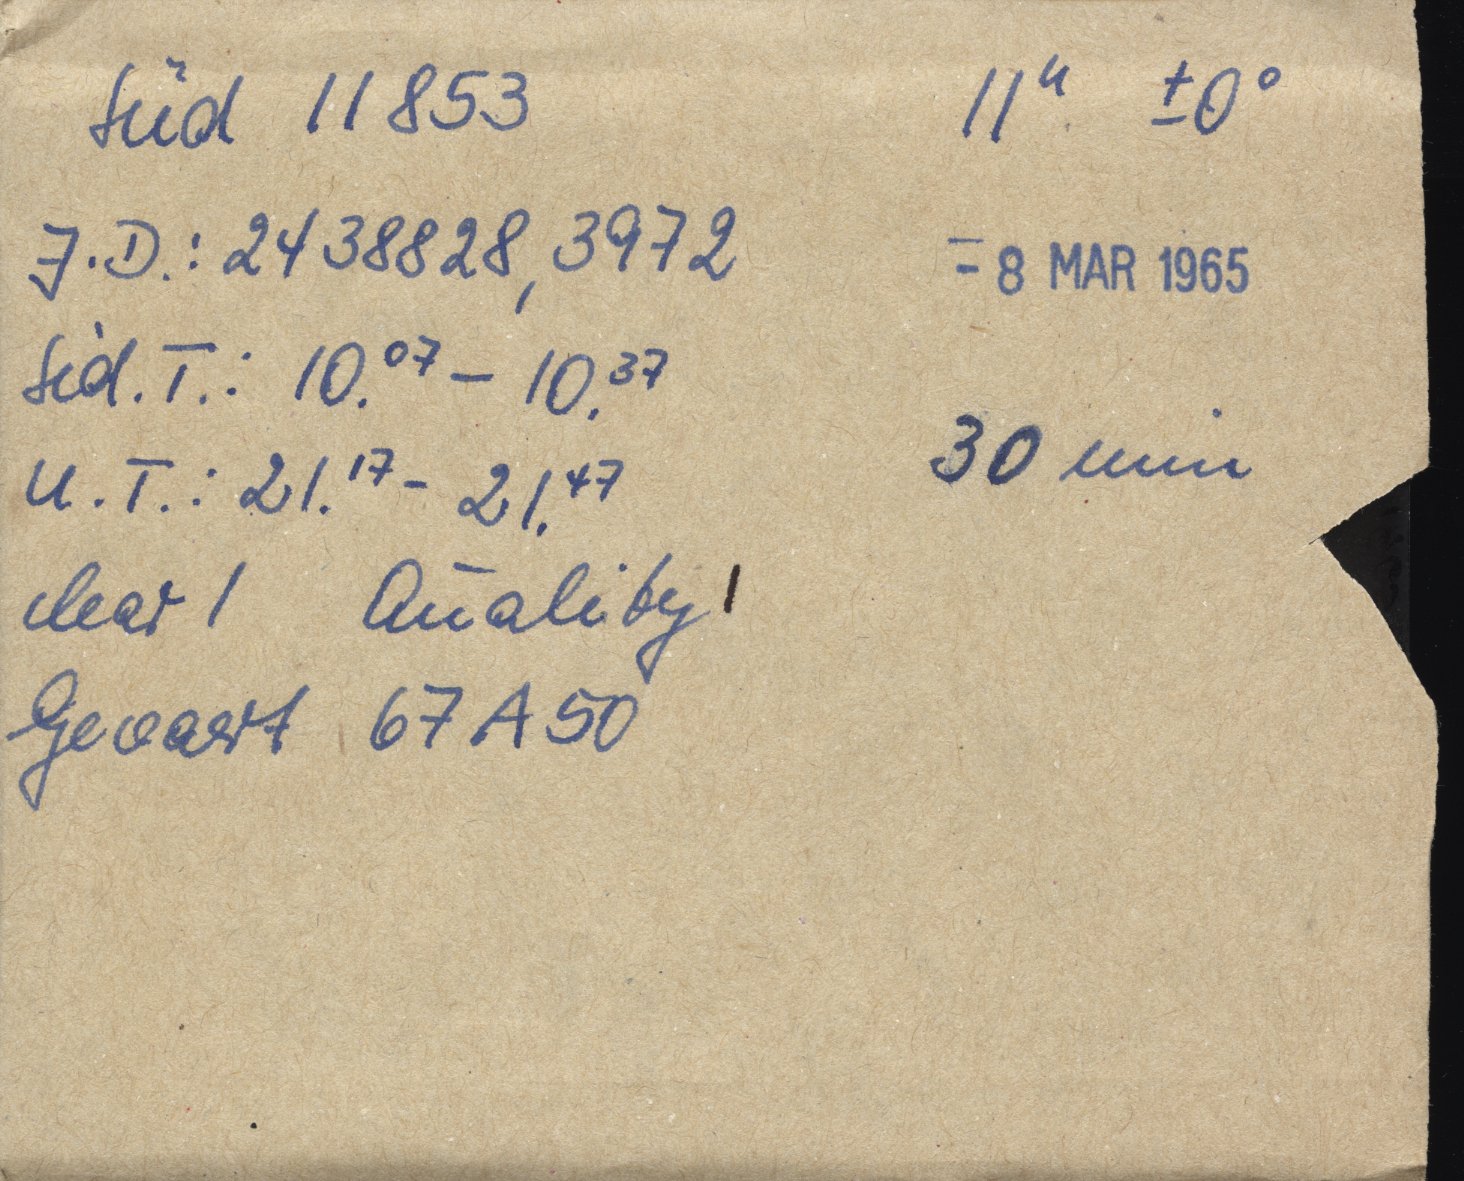 Süd 11853 11ʰ ±0°
J.D.: 2438828,3972 - 8 MAR 1965
Sid. T.: 10.07 – 10.37
30 min
U. T.: 21.17 - 21.47
clear 1 Quality 1
Gevaert 67 A 50